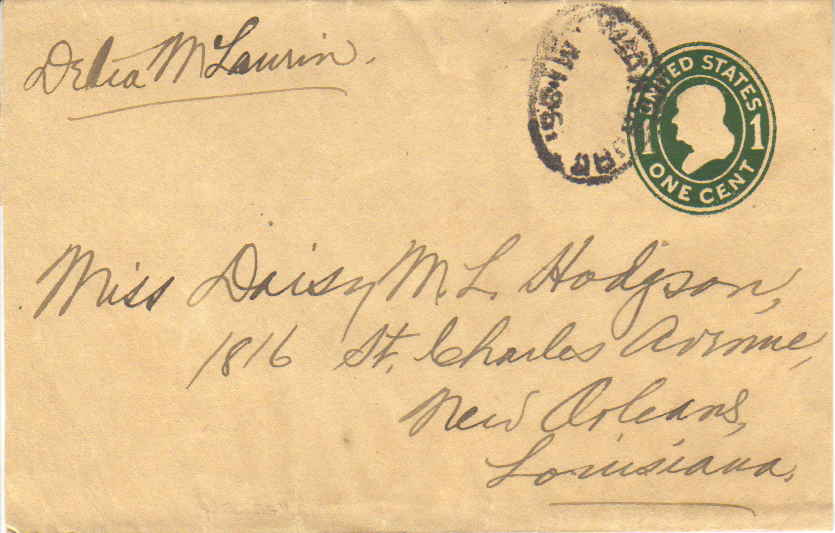 Delia McLaurin.
UNITED STATES
1 1
ONE CENT
Miss Daisy M. L. Hodgson,
1816 St. Charles Avenue,
New Orleans,
Louisiana.